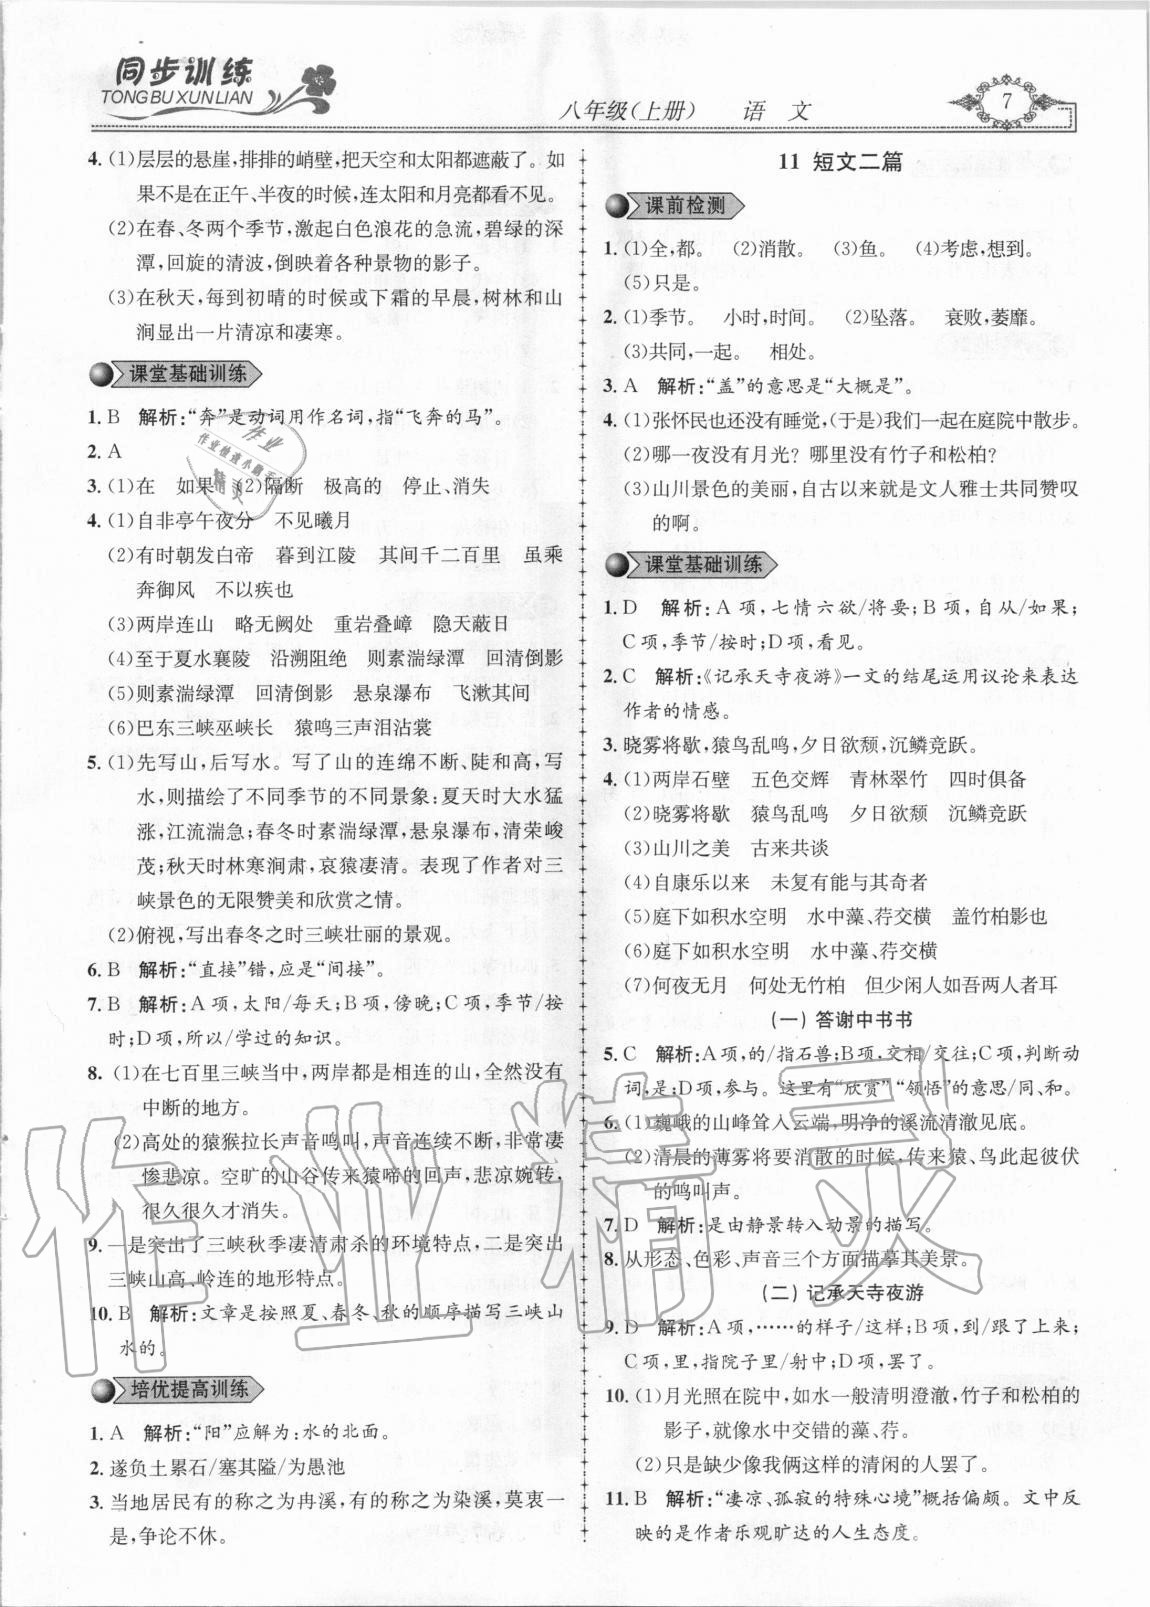 同步训练
TONGBUXUNLIAN
八年级(上册) 语 文
7
4. (1)层层的悬崖,排排的峭壁,把天空和太阳都遮蔽了。如
果不是在正午、半夜的时候,连太阳和月亮都看不见。
(2)在春、冬两个季节,激起白色浪花的急流,碧绿的深
潭,回旋的清波,倒映着各种景物的影子。
(3)在秋天,每到初晴的时候或下霜的早晨,树林和山
涧显出一片清凉和凄寒。
课堂基础训练
1. B 解析:“奔”是动词用作名词,指“飞奔的马”。
2. A
3. (1)在 如果 (2)隔断 极高的 停止、消失
4. (1)自非亭午夜分 不见曦月
(2)有时朝发白帝 暮到江陵 其间千二百里 虽乘
奔御风 不以疾也
(3)两岸连山 略无阙处 重岩叠嶂 隐天蔽日
(4)至于夏水襄陵 沿溯阻绝 则素湍绿潭 回清倒影
(5)则素湍绿潭 回清倒影 悬泉瀑布 飞漱其间
(6)巴东三峡巫峡长 猿鸣三声泪沾裳
5. (1)先写山,后写水。写了山的连绵不断、陡和高,写
水,则描绘了不同季节的不同景象:夏天时大水猛
涨,江流湍急;春冬时素湍绿潭,悬泉瀑布,清荣峻
茂;秋天时林寒涧肃,哀猿凄清。表现了作者对三
峡景色的无限赞美和欣赏之情。
(2)俯视,写出春冬之时三峡壮丽的景观。
6. B 解析:“直接”错,应是“间接”。
7. B 解析:A项,太阳/每天;B项,傍晚;C项,季节/按
时;D项,所以/学过的知识。
8. (1)在七百里三峡当中,两岸都是相连的山,全然没有
中断的地方。
(2)高处的猿猴拉长声音鸣叫,声音连续不断,非常凄
惨悲凉。空旷的山谷传来猿啼的回声,悲凉婉转,
很久很久才消失。
9. 一是突出了三峡秋季凄清肃杀的环境特点,二是突出
三峡山高、岭连的地形特点。
10. B 解析:文章是按照夏、春冬、秋的顺序描写三峡山
水的。
培优提高训练
1. A 解析:“阳”应解为:水的北面。
2. 遂负土累石/塞其隘/为愚池
3. 当地居民有的称之为冉溪,有的称之为染溪,莫衷一
是,争论不休。
11 短文二篇
课前检测
1. (1)全,都。 (2)消散。 (3)鱼。 (4)考虑,想到。
(5)只是。
2. (1)季节。 小时,时间。 (2)坠落。 衰败,萎靡。
(3)共同,一起。 相处。
3. A 解析:“盖”的意思是“大概是”。
4. (1)张怀民也还没有睡觉,(于是)我们一起在庭院中散步。
(2)哪一夜没有月光?哪里没有竹子和松柏?
(3)山川景色的美丽,自古以来就是文人雅士共同赞叹
的啊。
课堂基础训练
1. D 解析:A项,七情六欲/将要;B项,自从/如果;
C项,季节/按时;D项,看见。
2. C 解析:《记承天寺夜游》一文的结尾运用议论来表达
作者的情感。
3. 晓雾将歇,猿鸟乱鸣,夕日欲颓,沉鳞竞跃。
4. (1)两岸石壁 五色交辉 青林翠竹 四时俱备
(2)晓雾将歇 猿鸟乱鸣 夕日欲颓 沉鳞竞跃
(3)山川之美 古来共谈
(4)自康乐以来 未复有能与其奇者
(5)庭下如积水空明 水中藻、荇交横 盖竹柏影也
(6)庭下如积水空明 水中藻、荇交横
(7)何夜无月 何处无竹柏 但少闲人如吾两人者耳
(一)答谢中书书
5. C 解析:A项,的/指石兽;B项,交相/交往;C项,判断动
词,是;D项,参与。这里有“欣赏”“领悟”的意思/同、和。
6. (1)巍峨的山峰耸入云端,明净的溪流清澈见底。
(2)清晨的薄雾将要消散的时候,传来猿、鸟此起彼伏
的鸣叫声。
7. D 解析:是由静景转入动景的描写。
8. 从形态、色彩、声音三个方面描摹其美景。
(二)记承天寺夜游
9. D 解析:A项,……的样子/这样;B项,到/跟了上来;
C项,里,指院子里/射中;D项,罢了。
10. (1)月光照在院中,如水一般清明澄澈,竹子和松柏的
影子,就像水中交错的藻、荇。
(2)只是缺少像我俩这样的清闲的人罢了。
11. B 解析:“凄凉、孤寂的特殊心境”概括偏颇。文中反
映的是作者乐观旷达的人生态度。
作业精灵